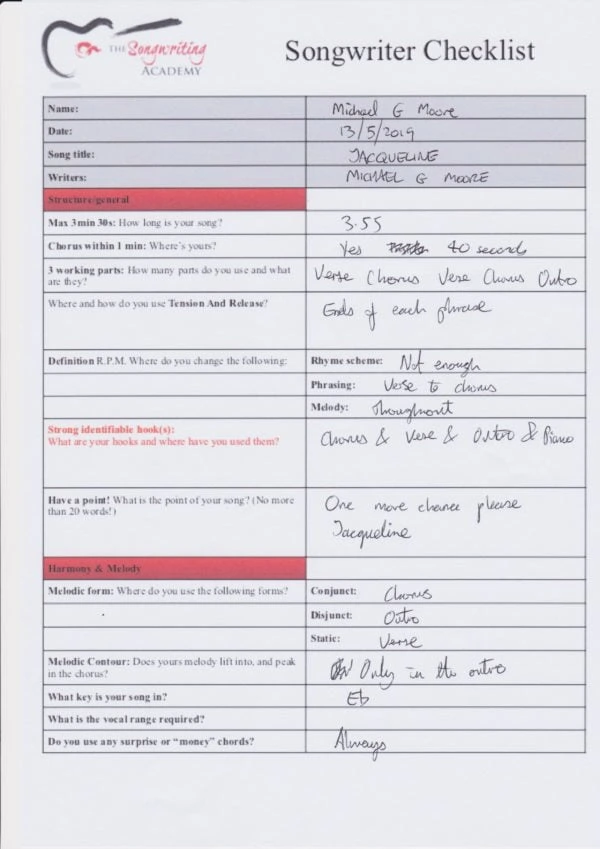 THE Songwriting
ACADEMY
Songwriter Checklist
Name: Michael G Moore
Date: 13/5/2019
Song title: JACQUELINE
Writers: MICHAEL G MOORE
Structure/general
Max 3min 30s: How long is your song? 3.55
Chorus within 1 min: Where's yours? Yes 40 seconds
3 working parts: How many parts do you use and what are they? Verse Chorus Verse Chorus Outro
Where and how do you use Tension And Release? Ends of each phrase
Definition R.P.M. Where do you change the following: Rhyme scheme: Not enough
Phrasing: Verse to chorus
Melody: Throughout
Strong identifiable hook(s):
What are your hooks and where have you used them? Chorus & Verse & Outro & Piano
Have a point! What is the point of your song? (No more
than 20 words!) One more chance please
Jacqueline
Harmony & Melody
Melodic form: Where do you use the following forms? Conjunct: Chorus
Disjunct: Outro
Static: Verse
Melodic Contour: Does yours melody lift into, and peak
in the chorus? Only in the outro
What key is your song in? Eb
What is the vocal range required?
Do you use any surprise or "money" chords? Always